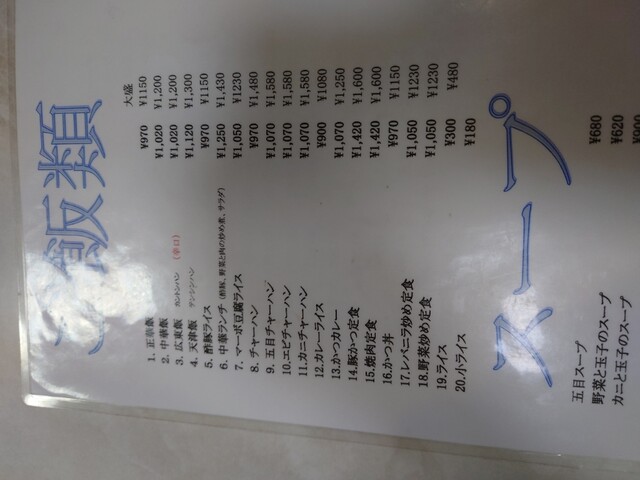 飯類
大盛
1. 正華飯 ¥970 ¥1150
2. 中華飯 ¥1,020 ¥1,200
3. 広東飯 カントンハン (辛口) ¥1,020 ¥1,200
4. 天津飯 テンシンハン ¥1,120 ¥1,300
5. 酢豚ライス ¥970 ¥1150
6. 中華ランチ (酢豚、野菜と肉の炒め煮、サラダ) ¥1,250 ¥1,430
7. マーボ豆腐ライス ¥1,050 ¥1230
8. チャーハン ¥970 ¥1,480
9. 五目チャーハン ¥1,070 ¥1,580
10. エビチャーハン ¥1,070 ¥1,580
11. カニチャーハン ¥1,070 ¥1,580
12. カレーライス ¥900 ¥1080
13. かつカレー ¥1,070 ¥1,250
14. 豚かつ定食 ¥1,420 ¥1,600
15. 焼肉定食 ¥1,420 ¥1,600
16. かつ丼 ¥970 ¥1150
17. レバニラ炒め定食 ¥1,050 ¥1230
18. 野菜炒め定食 ¥1,050 ¥1230
19. ライス ¥300 ¥480
20. 小ライス ¥180
スープ
五目スープ ¥680
野菜と玉子のスープ ¥620
カニと玉子のスープ